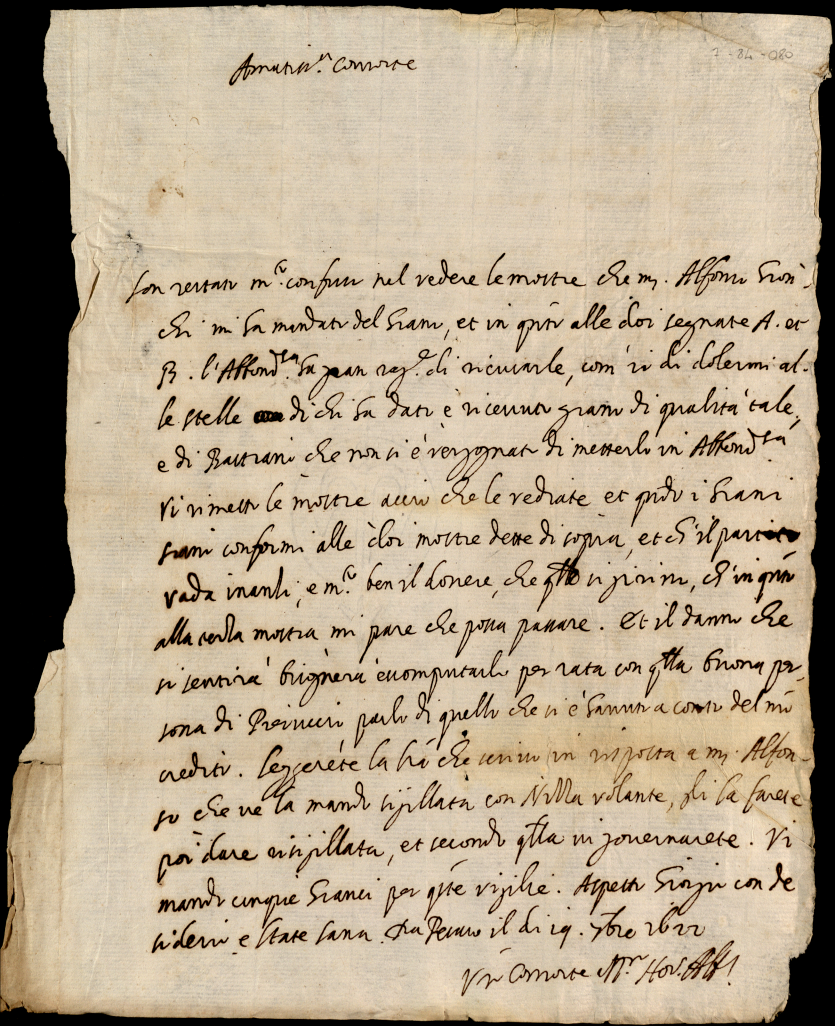 7-84-080
Amatiss.a Consorte
Son restato m.to confuso nel vedere le mostre che m. Alfonso Gron-
chi mi ha mandato del Grano, et in q.to alle doi segnate A. et
B. l'Abbond.za ha gran rag.e di ricusarle, com' io di dolermi al-
le stelle di chi ha dato e ricevuto grano di qualità tale,
e di Bastiano che non si è vergognato di metterlo in Abbond.za
Vi rimetto le mostre acciò che le vediate et q.do i Grani
siano conformi alle doi mostre dette di sopra, et ch' il partito
vada inanzi, e m.to ben il dovere, che q.llo si ch' in q.to
alla terza mostra mi pare che possa passare. Et il danno che
si sentirà bisognerà scomputarlo per rata con q.lla buona per-
sona di parlo di quello che si è hauuto a conto del mio
credito. Leggerete la l.ra che scrivo in risposta a m. Alfon-
so che ve la mando sigillata con volante, gli la farete
poi dare risigillata, et secondo q.lla vi governarete. Vi
mando cinque Granci per q.te vigilie. Aspetto Giorgio con de
siderio e state sana. Da Pesaro il dì 19. 7bre 1622
V.ro Consorte Hor.